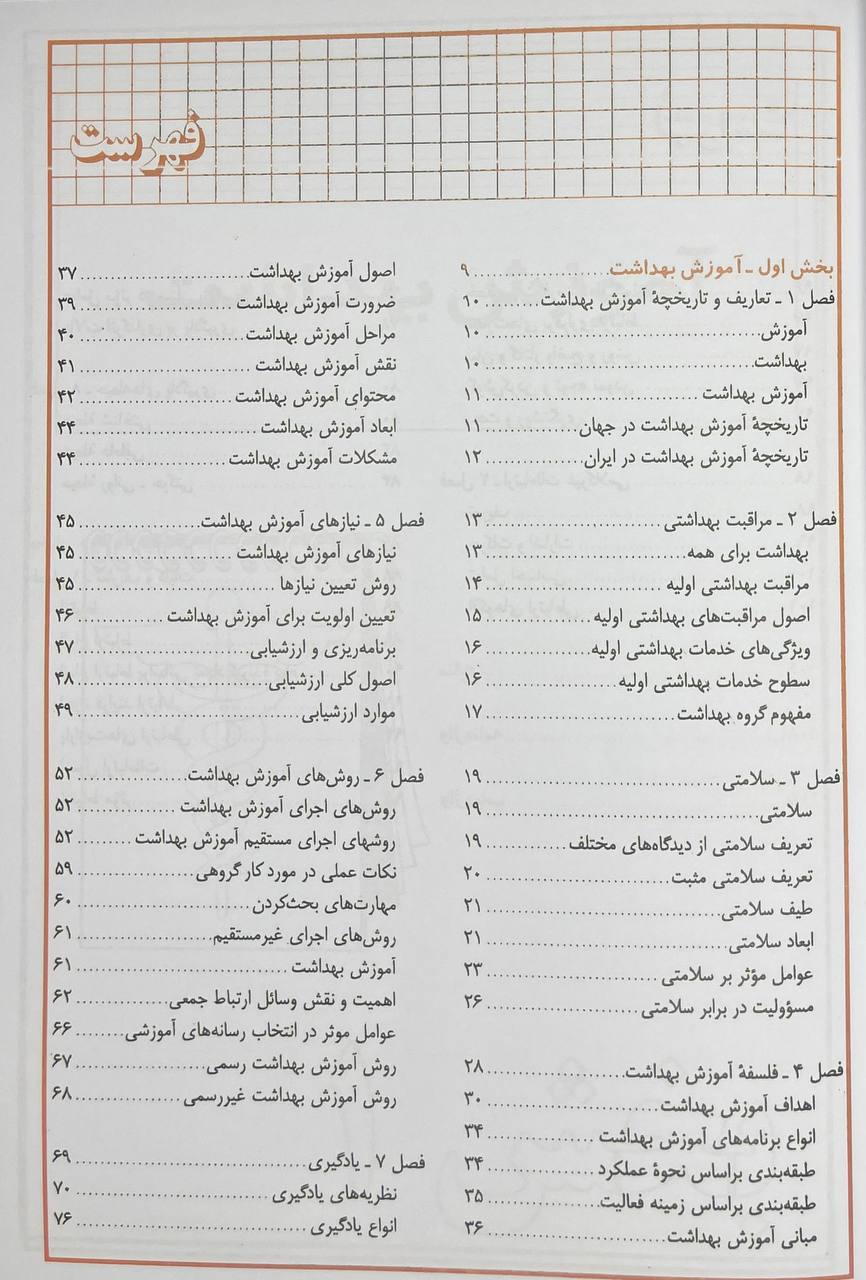 فهرست
بخش اول ـ آموزش بهداشت ۹
فصل ۱ ـ تعاریف و تاریخچهٔ آموزش بهداشت ۱۰
آموزش ۱۰
بهداشت ۱۰
آموزش بهداشت ۱۱
تاریخچهٔ آموزش بهداشت در جهان ۱۱
تاریخچهٔ آموزش بهداشت در ایران ۱۲
فصل ۲ ـ مراقبت بهداشتی ۱۳
بهداشت برای همه ۱۳
مراقبت بهداشتی اولیه ۱۴
اصول مراقبت‌های بهداشتی اولیه ۱۵
ویژگی‌های خدمات بهداشتی اولیه ۱۶
سطوح خدمات بهداشتی اولیه ۱۶
مفهوم گروه بهداشت ۱۷
فصل ۳ ـ سلامتی ۱۹
سلامتی ۱۹
تعریف سلامتی از دیدگاه‌های مختلف ۱۹
تعریف سلامتی مثبت ۲۰
طیف سلامتی ۲۱
ابعاد سلامتی ۲۱
عوامل مؤثر بر سلامتی ۲۳
مسؤولیت در برابر سلامتی ۲۶
فصل ۴ ـ فلسفهٔ آموزش بهداشت ۲۸
اهداف آموزش بهداشت ۳۰
انواع برنامه‌های آموزش بهداشت ۳۴
طبقه‌بندی براساس نحوهٔ عملکرد ۳۴
طبقه‌بندی براساس زمینه فعالیت ۳۵
مبانی آموزش بهداشت ۳۶
اصول آموزش بهداشت ۳۷
ضرورت آموزش بهداشت ۳۹
مراحل آموزش بهداشت ۴۰
نقش آموزش بهداشت ۴۱
محتوای آموزش بهداشت ۴۲
ابعاد آموزش بهداشت ۴۴
مشکلات آموزش بهداشت ۴۴
فصل ۵ ـ نیازهای آموزش بهداشت ۴۵
نیازهای آموزش بهداشت ۴۵
روش تعیین نیازها ۴۵
تعیین اولویت برای آموزش بهداشت ۴۶
برنامه‌ریزی و ارزشیابی ۴۷
اصول کلی ارزشیابی ۴۸
موارد ارزشیابی ۴۹
فصل ۶ ـ روش‌های آموزش بهداشت ۵۲
روش‌های اجرای آموزش بهداشت ۵۲
روشهای اجرای مستقیم آموزش بهداشت ۵۲
نکات عملی در مورد کار گروهی ۵۹
مهارت‌های بحث‌کردن ۶۰
روش‌های اجرای غیرمستقیم ۶۱
آموزش بهداشت ۶۱
اهمیت و نقش وسائل ارتباط جمعی ۶۲
عوامل موثر در انتخاب رسانه‌های آموزشی ۶۶
روش آموزش بهداشت رسمی ۶۷
روش آموزش بهداشت غیررسمی ۶۸
فصل ۷ ـ یادگیری ۶۹
نظریه‌های یادگیری ۷۰
انواع یادگیری ۷۶